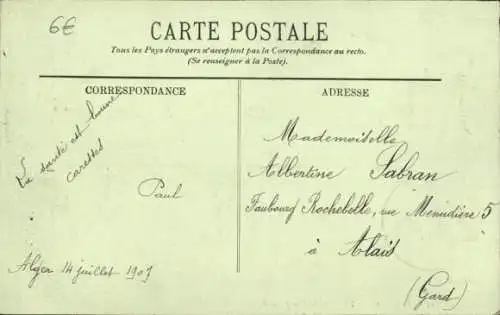 6€
CARTE POSTALE
Tous les Pays étrangers n'acceptent pas la Correspondance au recto.
(Se renseigner à la Poste).
CORRESPONDANCE
ADRESSE
La santé est bonne
caresses
Paul
Alger 14 juillet 1907
Mademoiselle
Albertine Sabran
Faubourg Rochebelle, rue Menudière 5
à Alais
(Gard)